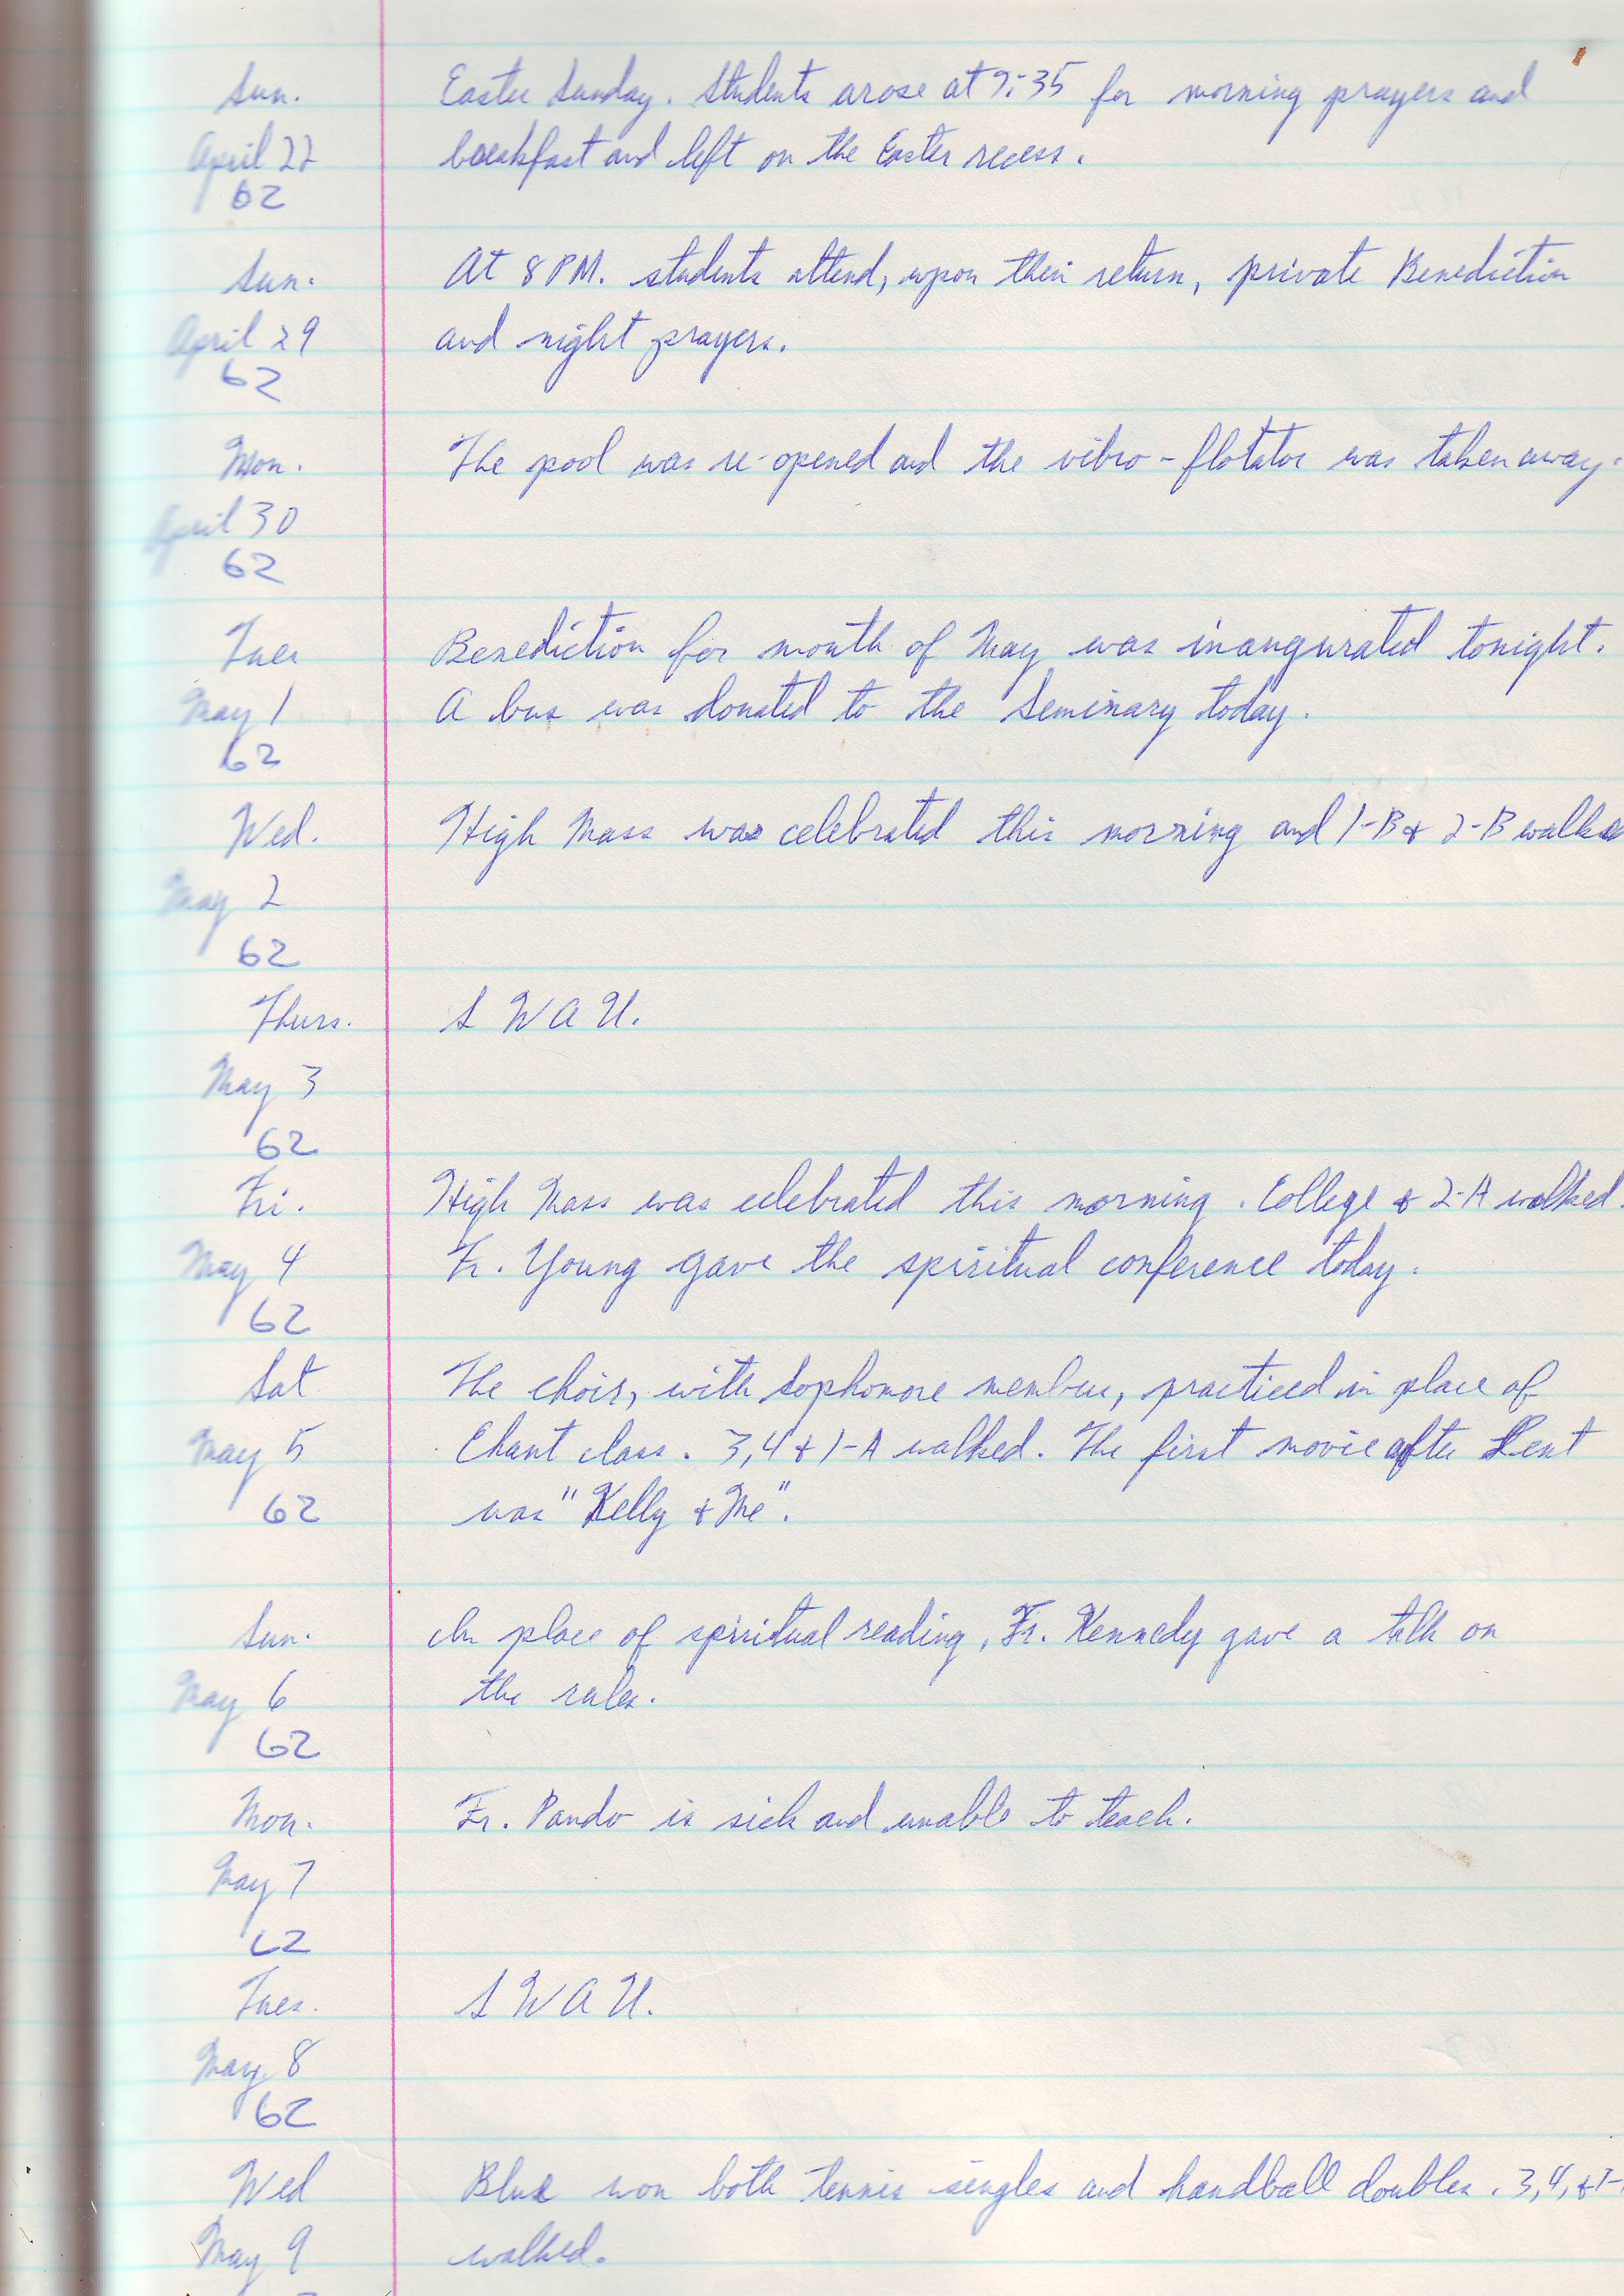 Sun. Easter Sunday. Students arose at 7:35 for morning prayers and
April 22 breakfast and left on the Easter recess.
62
Sun. At 8 PM. students attend, upon their return, private Benediction
April 29 and night prayers.
62
Mon. The pool was re-opened and the vibro-flotator was taken away.
April 30
62
Tues Benediction for month of May was inaugurated tonight.
May 1 A bus was donated to the Seminary today.
62
Wed. High Mass was celebrated this morning and 1-B & 2-B walked
May 2
62
Thurs. S W A U.
May 3
62
Fri. High Mass was celebrated this morning. College & 2-A walked.
May 4 Fr. Young gave the spiritual conference today.
62
Sat The choir, with Sophomore members, practiced in place of
May 5 Chant class. 3, 4 & 1-A walked. The first movie after Lent
62 was "Kelly & Me".
Sun. In place of spiritual reading, Fr. Kennedy gave a talk on
May 6 the rules.
62
Mon. Fr. Pando is sick and unable to teach.
May 7
62
Tues. S W A U.
May 8
62
Wed Blue won both tennis singles and handball doubles. 3, 4, & 1-
May 9 walked.